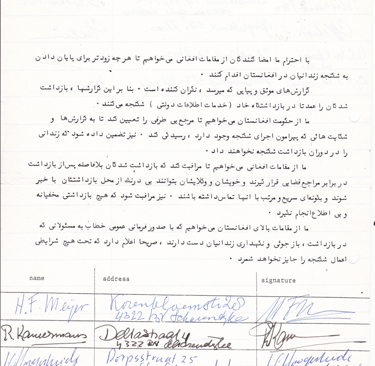 با احترام ما امضا کنندگان از مقامات افغانی می‌خواهیم تا هر چه زودتر برای پایان دادن
به شکنجه زندانیان در افغانستان اقدام کنند .
گزارش‌های موثق و پیاپی که میرسد ، نگران کننده است . بنا بر این گزارشها ، بازداشت
شدگان را عمدتا در بازداشتگاه خاد (خدمات اطلاعات دولتی) شکنجه می‌کنند .
ما از حکومت افغانستان می‌خواهیم تا مرجع بی طرفی را تعیین کند تا به گزارش‌ها و
شکایت هائی که پیرامون اجرای شکنجه وجود دارد ، رسیدگی کند . نیز تضمین داده شود که زندانی
را در دوران بازداشت شکنجه نخواهند داد .
ما از مقامات افغانی می‌خواهیم تا مراقبت کند که بازداشت شدگان بلافاصله پس از بازداشت
در برابر مراجع قضایی قرار گیرند و خویشان و وکلایشان بتوانند بی درنگ از محل بازداشتشان با خبر
شوند و بگونه‌ای سریع و مرتب با آنها تماس داشته باشند . نیز مراقبت شود که هیچ بازداشتی مخفیانه
و بی اطلاع انجام نگیرد .
ما از مقامات بالای افغانستان می‌خواهیم که با صدور فرمانی عمومی خطاب به مسئولانی که
در بازداشت ، بازجوئی و نگهداری زندانیان دست دارند ، صریحا اعلام دارد که تحت هیچ شرایطی
اعمال شکنجه را جایز نخواهد شمرد .
name address signature
H.F. Meijer
4322
R.
4322
Dorpsstraat 25